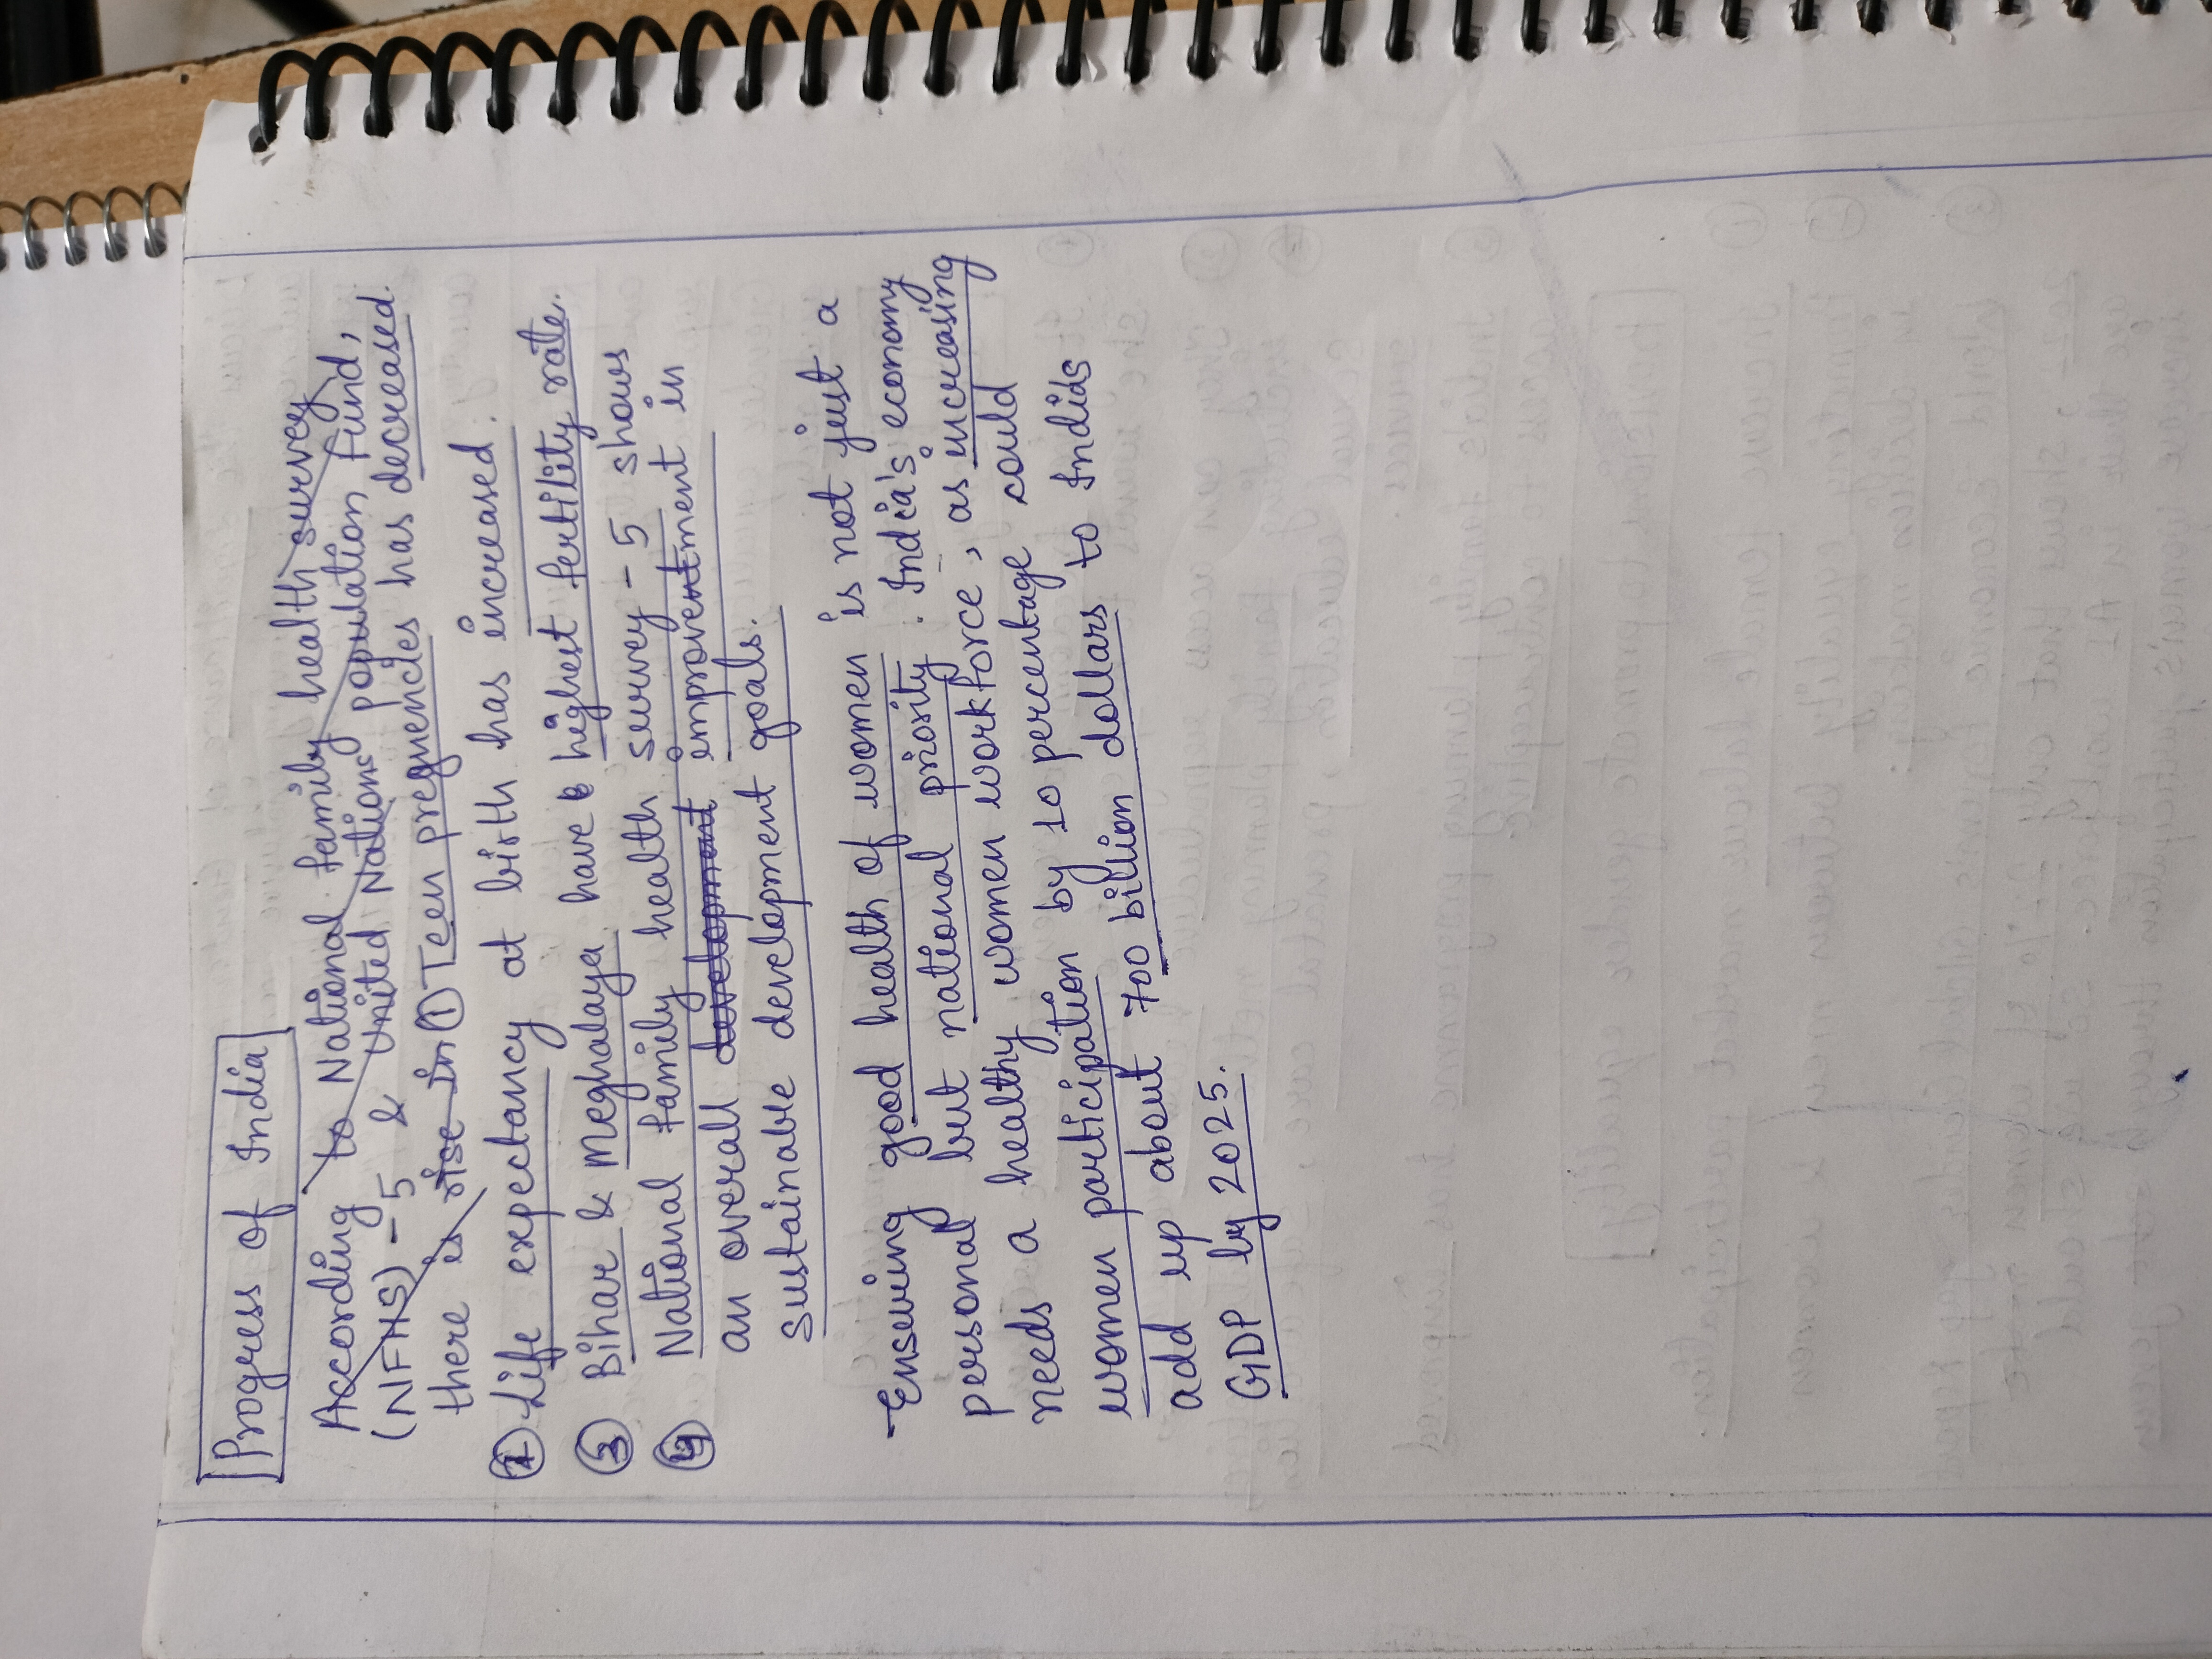 Progress of India
According to National family health survey
(NFHS)-5 & United Nations population fund,
there is rise in ① Teen pregnencies has decreased.
② Life expectancy at birth has increased.
③ Bihar & Meghalaya have highest fertility rate.
④ National family health survey-5 shows
an overall development improvement in
sustainable development goals.
Ensuring good health of women is not just a
personal but national priority. India's economy
needs a healthy women workforce, as increasing
women participation by 10 percentage could
add up about 700 billion dollars to Indias
GDP by 2025.